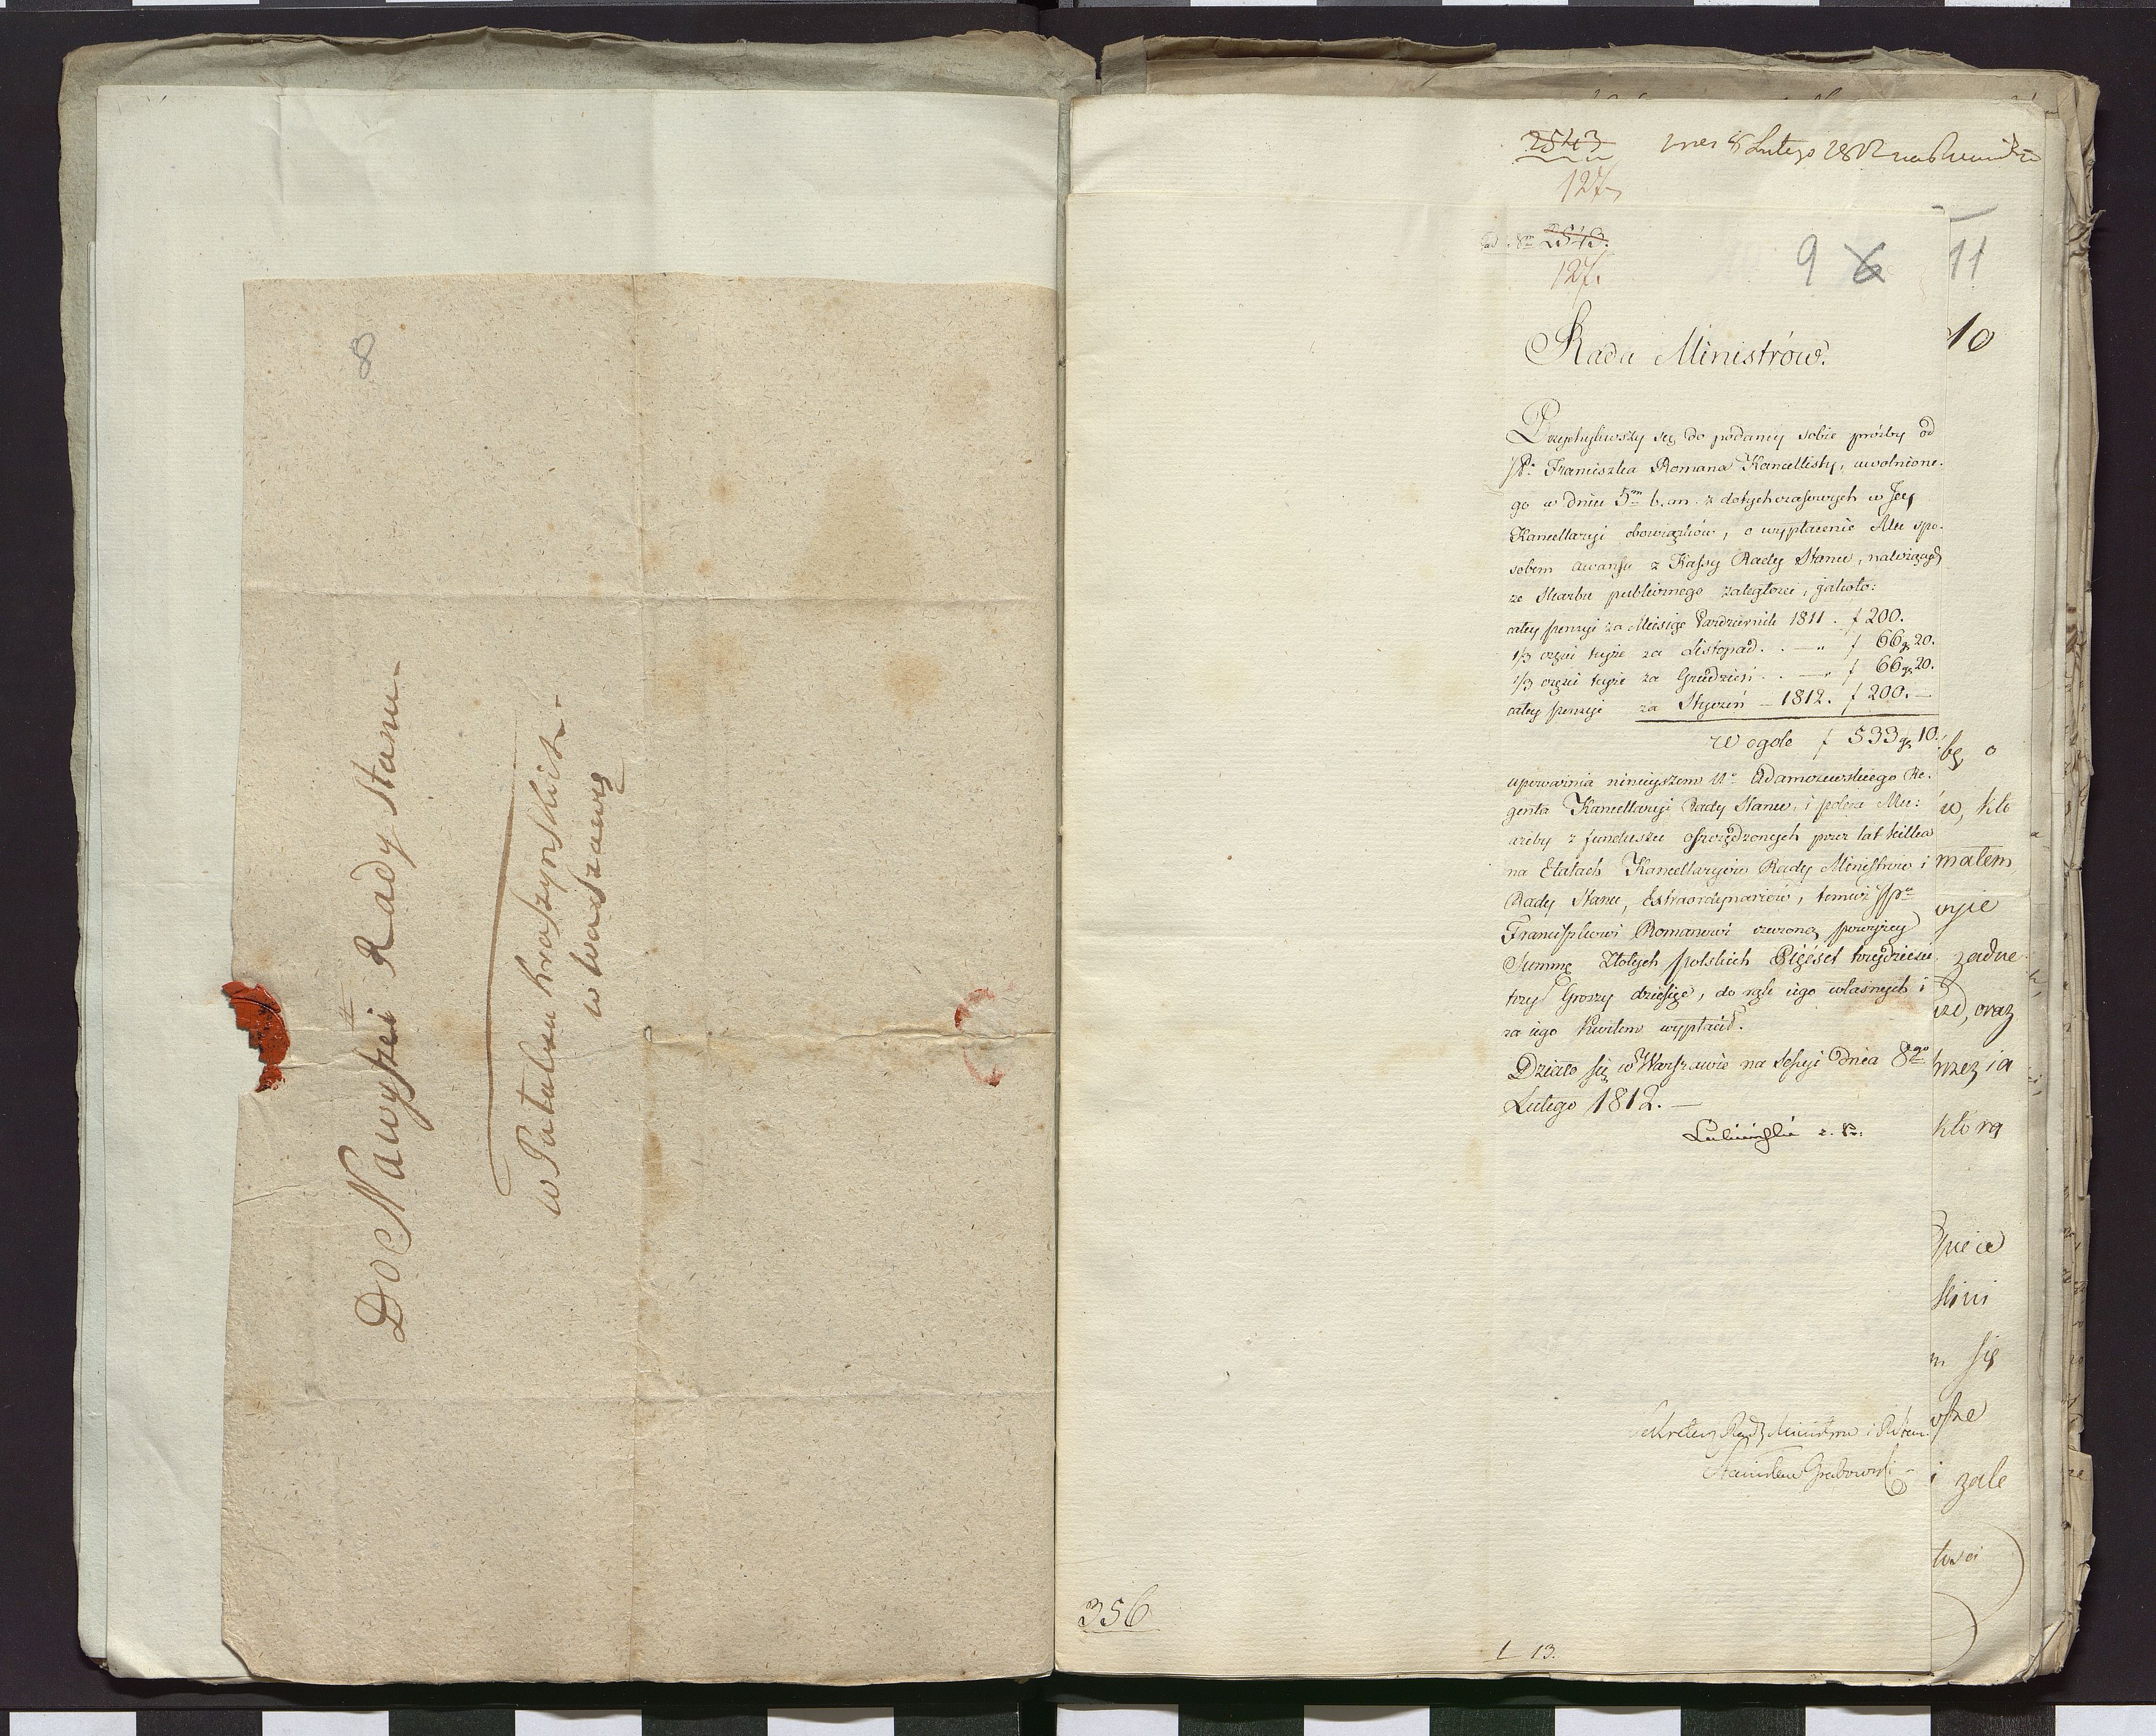 8
Do Nawyższei Rady Stanu
w Pałatzu kraszynskich
w warszawię
2543
127
8 Lutego 1812
ad Nrm 2543.
127.
9 6 11
10
Rada Ministrów.
Przychyliwszy się do podaney sobie prośby od
JP. Franciszka Romana Kancellisty, uwolnione-
go w dniu 5m b. m. z dotychczasowych w Jey
Kancellaryi obowiązków, o wypłacenie Mu spo-
sobem awansu z Kassy Rady Stanu, należącej
ze Skarbu publicznego zaległości, jakoto:
całey pensyi za Miesiąc Pazdziernik 1811. f 200.
1/3 części teyże za Listopad . . — " f 66 gr 20.
1/3 części teyże za Grudzień . . — " f 66 gr 20.
całey pensyi za Styczeń — 1812. f 200. —
W ogole f 533 gr 10.
upoważnia ninieyszem Ur. Adamczewskiego Re-
genta Kancellaryi Rady Stanu, i poleca Mu:
ażeby z funduszu oszczędzonych przez lat kilka
na Etatach Kancellaryiów Rady Ministrow i
Rady Stanu, Extraordynariów, temuż JPu
Franciszkowi Romanowi rzeczoną powyżey
Summę Złotych polskich Pięćset trzydzieści
trzy Groszy dziesięć, do rąk iego własnych i
za iego Kwitem wypłacił.
Działo się w Warszawie na Sessyi dnia 8go
Lutego 1812. —
Sekretarz Rady Ministrow i R. Stanu
Stanisław Grabowski
bę o
w, kto
małem
zadne
oraz
przez ia
ktora
m się
i zale
356
L 13.